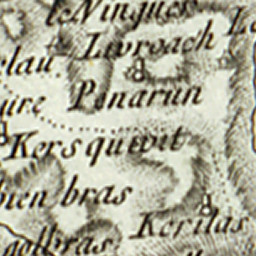 leNingues
Livroach
elau
Penarun
ure
Kersquivit
bien bras
Kerilas
golbras